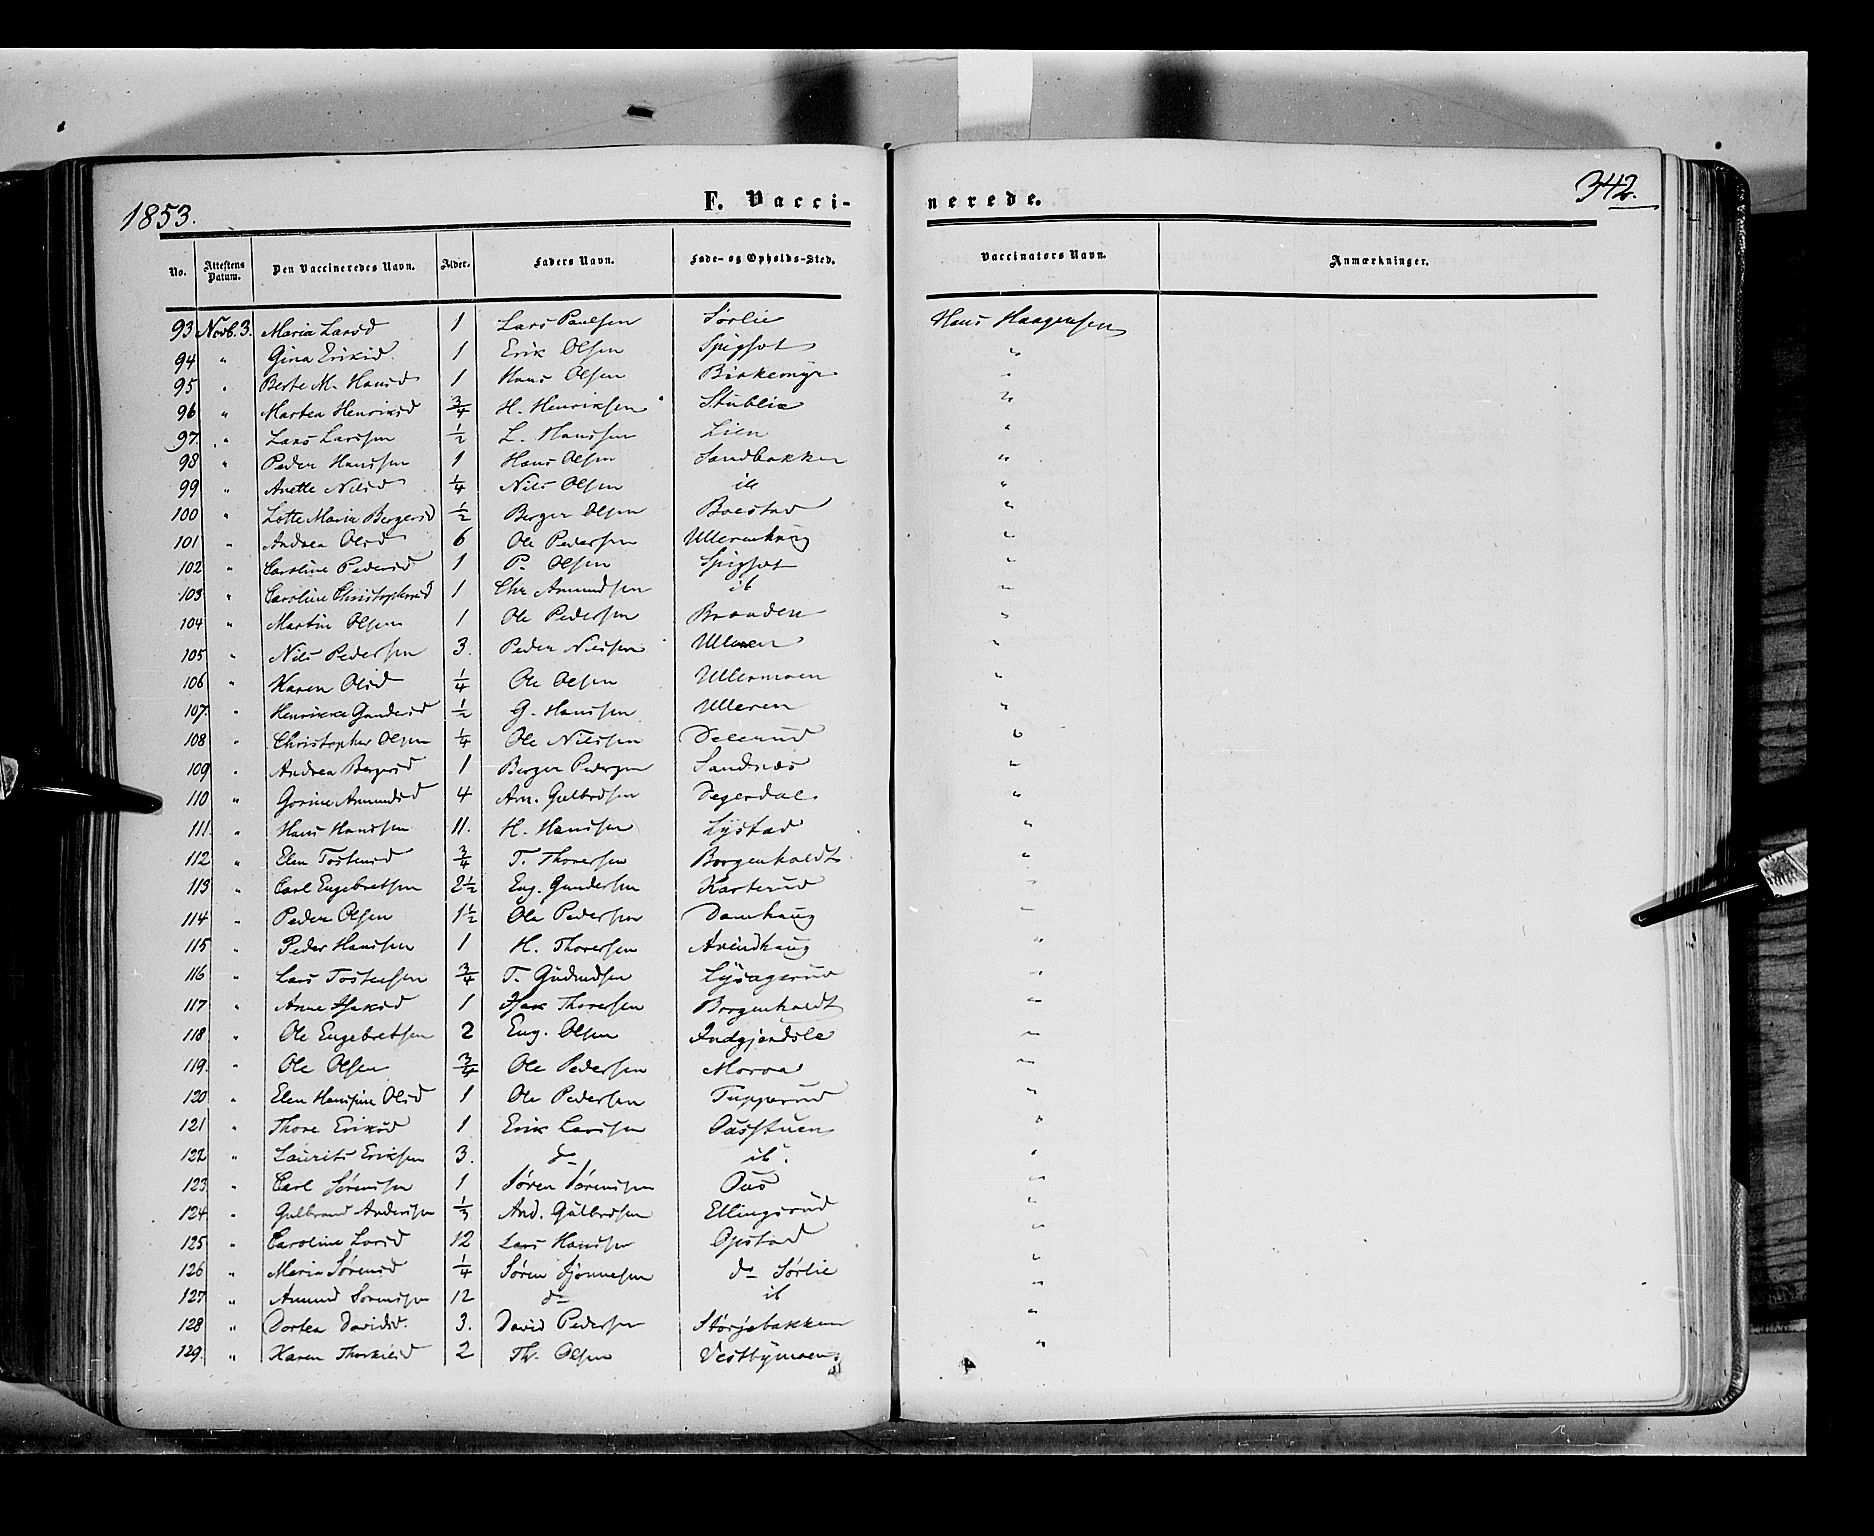 1853. F. Vacci-nerede. 342.
No. Attestens Datum. Den Vaccineredes Navn. Alder. Faders Navn. Føde- og Opholds-Sted. Vaccinators Navn. Anmærkninger.
93 Novb. 3. Maria Larsd 1 Lars Paulsen Sørlie Hans Haagensen
94 " Gina Eriksd. 1 Erik Olsen Spigset "
95 " Berte M. Hansd 1 Hans Olsen Birkemyr "
96 " Martea Henriksd 3/4 H. Henriksen Stublie "
97. " Lars Larssen 1/2 L. Hanssen Lien "
98 " Peder Hanssen 1 Hans Olsen Sandbakken "
99 " Anette Nilsd 1/4 Nils Olsen ib "
100 " Lotte Marie Bergersd 1/2 Berger Olsen Boestad "
101 " Andrea Olsd 6 Ole Pedersen Ullernhaug "
102 " Caroline Pedersd 1 P. Olsen Spigset "
103 " Caroline Christophersd 1 Chr Amundsen ib "
104 " Martin Olsen 1 Ole Pedersen Branden "
105 " Nils Pedersen 3. Peder Nilssen Ulleren "
106 " Karen Olsd 1/4 Ole Olsen Ullermoen "
107. " Henrikke Gundersd 1/2 G. Hanssen Ulleren "
108 " Christopher Olsen 1/4 Ole Nilssen Delerud "
109 " Andrea Bergersd 1 Berger Pedersen Sandnæs "
110 " Gorine Amundsd 4 Am. Gulbrdsen Degerdal "
111. " Hans Hanssen 11. H. Hanssen Lystad "
112 " Elen Tostensd 3/4 T. Thoresen Borgenholdt "
113 " Carl Engebretsen 2 1/2 Eng. Gundersen Karterud "
114 " Peder Olsen 1 1/2 Ole Pedersen Damhaug "
115 " Peder Hanssen 1 H. Thoresen Arindhaug "
116 " Lars Tostensen 3/4 T. Gudmdsen Lysagerud "
117 " Anne Isaksd 1 Isak Thoresen Borgenholdt "
118 " Ole Engebretsen 2 Eng. Olsen Indgjerdsle "
119. " Ole Olsen 3/4 Ole Pedersen Moroa "
120 " Elen Hansine Olsd 1 Ole Pedersen Tupperud "
121 " Thore Eriksd 1 Erik Larssen Aasstuen "
122 " Laurits Eriksen 3. do ib. "
123 " Carl Sørenssen 1 Søren Sørenssen Aas "
124 " Gulbrand Anderssen 1/3 And. Gulbrdsen Ellingsrud "
125 " Caroline Larsd 12 Lars Hanssen Opstad "
126 " Maria Sørensd 1/4 Søren Sjønnesen do Sørlie "
127 " Amund Sørenssen 12 do ib "
128 " Dortea Davidsd. 3. David Pedersen Størjebakken "
129. " Karen Thorkilsd 2 Th. Olsen Vestbymoen "